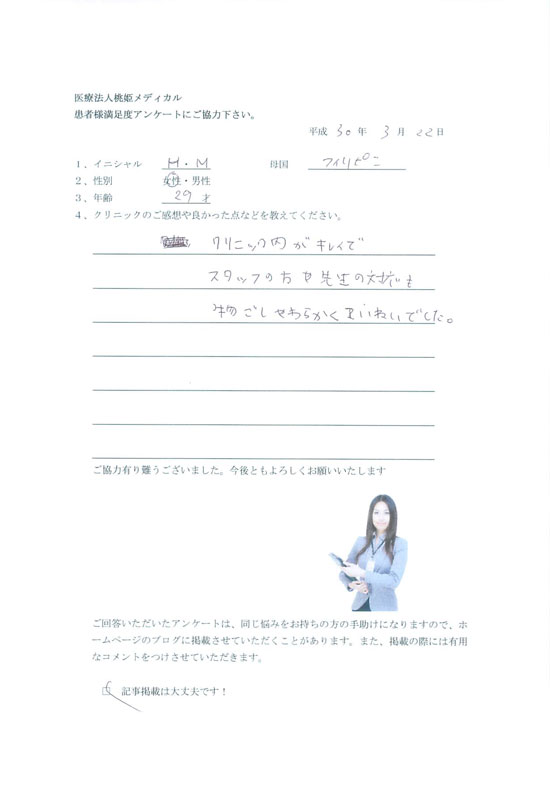 医療法人桃姫メディカル
患者様満足度アンケートにご協力下さい。
平成 30 年 3 月 22 日
1、イニシャル H・M 母国 フィリピン
2、性別 女性・男性
3、年齢 29才
4、クリニックのご感想や良かった点などを教えてください。
クリニック内がキレイで
スタッフの方や先生の対応も
物ごしやわらかくていねいでした。
ご協力有り難うございました。今後ともよろしくお願いいたします
ご回答いただいたアンケートは、同じ悩みをお持ちの方の手助けになりますので、ホ
ームページのブログに掲載させていただくことがあります。また、掲載の際には有用
なコメントをつけさせていただきます。
□ 記事掲載は大丈夫です！